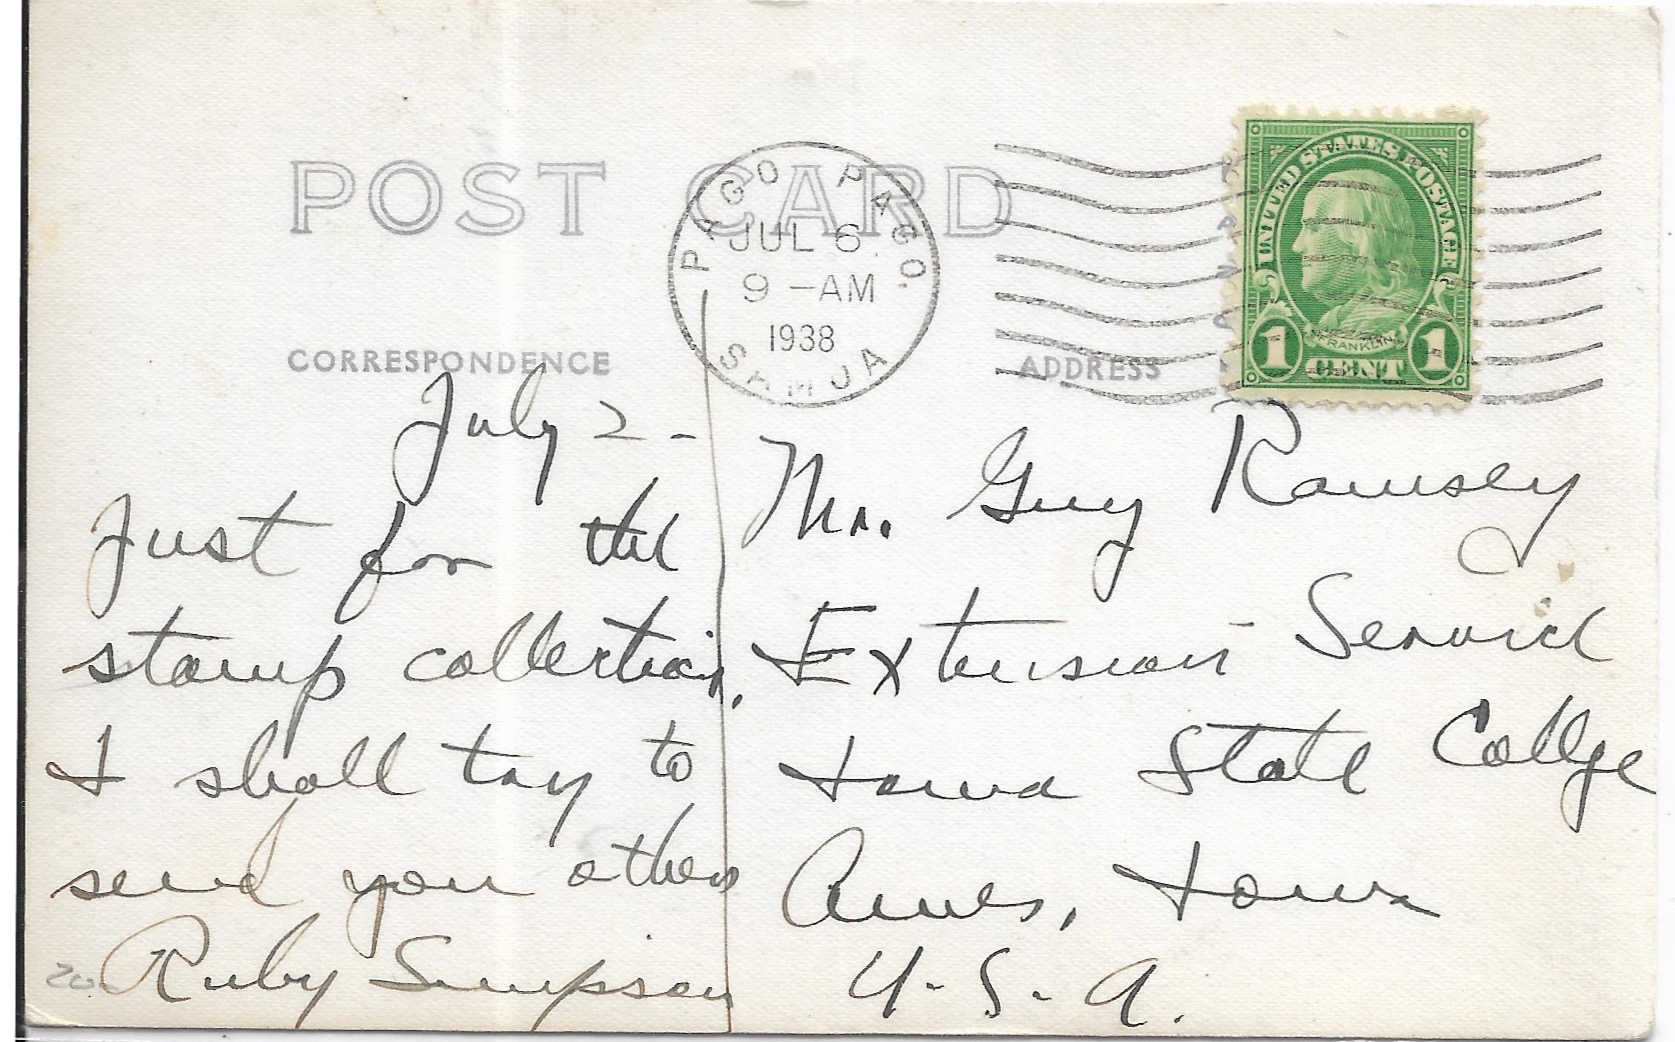 POST CARD
PAGO PAGO.
JUL 6
9 -AM
1938
SAMOA
UNITED STATES POSTAGE
FRANKLIN
1 CENT 1
CORRESPONDENCE
ADDRESS
July 2 -
Just for the
stamp collection.
I shall try to
send you others
Ruby Simpson
Mr. Guy Ramsey
Extension Service
Iowa State College
Ames, Iowa
U. S. A.